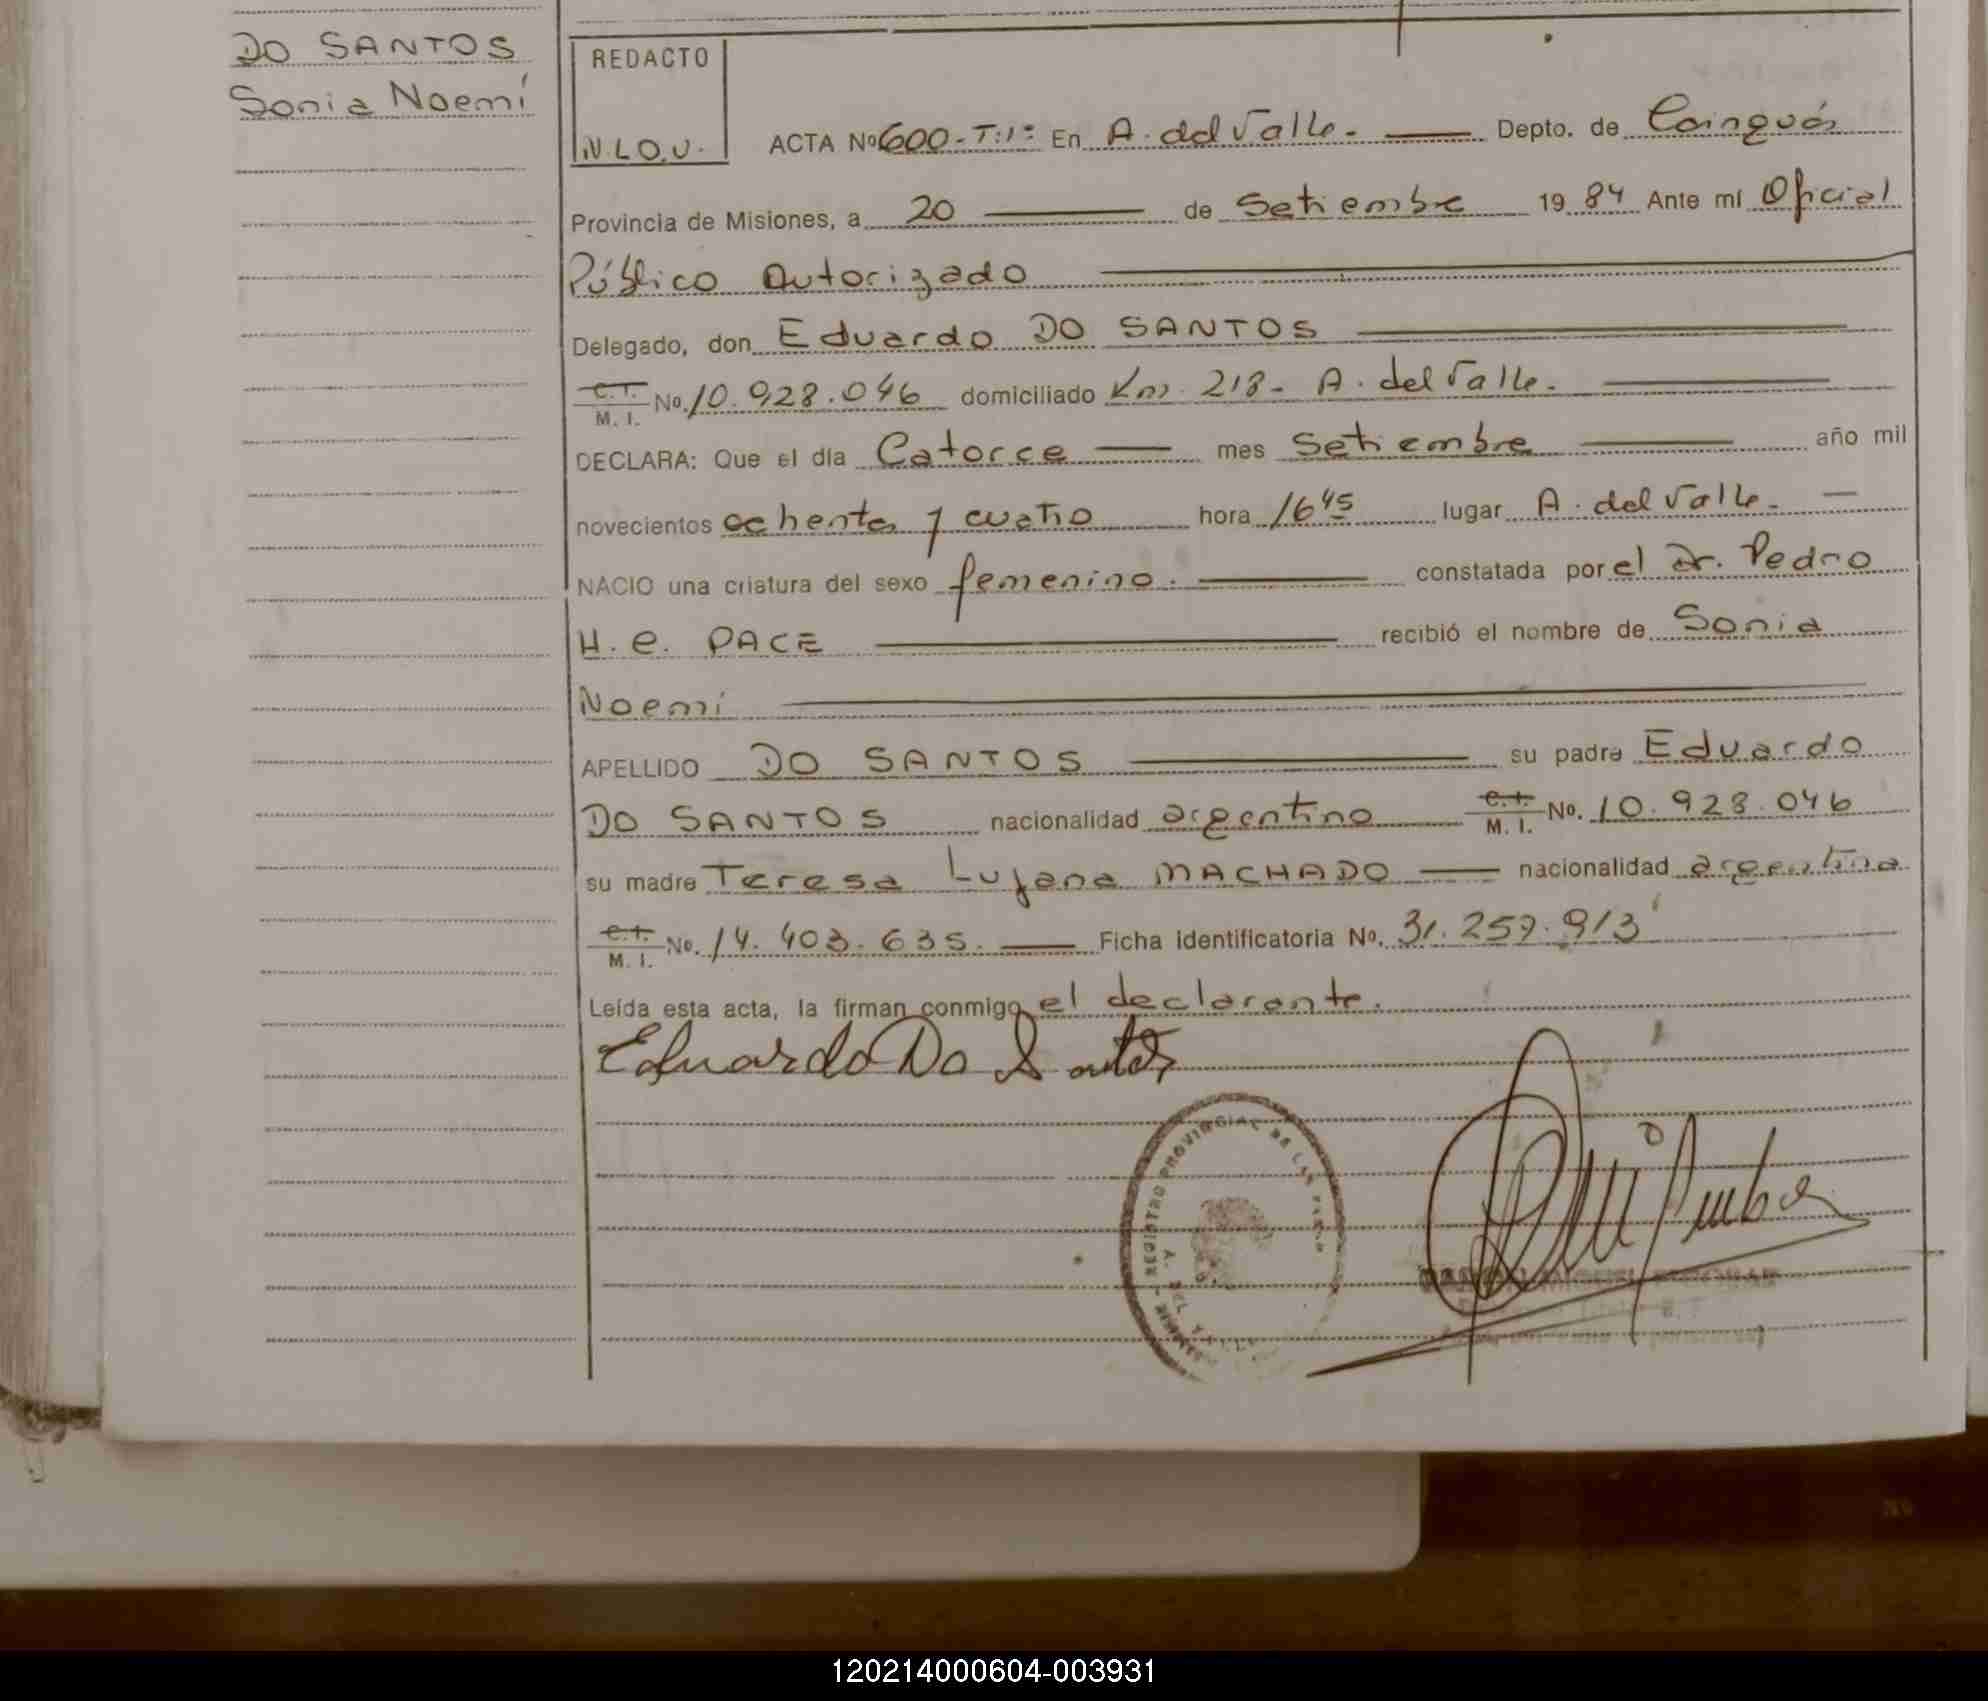 DO SANTOS
Sonia Noemí
REDACTO
N.L.O.V.
ACTA Nº 600-T:1º En A. del Valle.- Depto. de Cainguás
Provincia de Misiones, a 20 de Setiembre 19 84 Ante mí Oficial
Público Autorizado
Delegado, don Eduardo DO SANTOS
C.I. M.I. No. 10.928.046 domiciliado Km. 218- A. del Valle.
DECLARA: Que el día Catorce mes Setiembre año mil
novecientos ochenta y cuatro hora 16 45 lugar A. del Valle.
NACIO una criatura del sexo femenino. constatada por el Dr. Pedro
H. C. PACE recibió el nombre de Sonia
Noemí
APELLIDO DO SANTOS su padre Eduardo
DO SANTOS nacionalidad argentino C.I. M.I. No. 10.928.046
su madre Teresa Lujana MACHADO nacionalidad argentina
C.I. M.I. No. 14.403.635. Ficha identificatoria No. 31.257.913
Leída esta acta, la firman conmigo el declarante.
Eduardo Do Santos
REGISTRO PROVINCIAL DE LAS
A. DEL VALLE
120214000604-003931